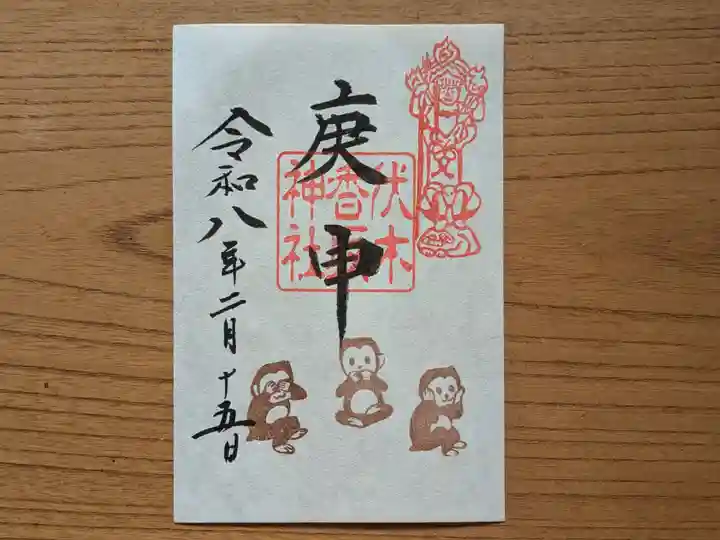 庚申
伏木
香取
神社
令和八年二月十五日